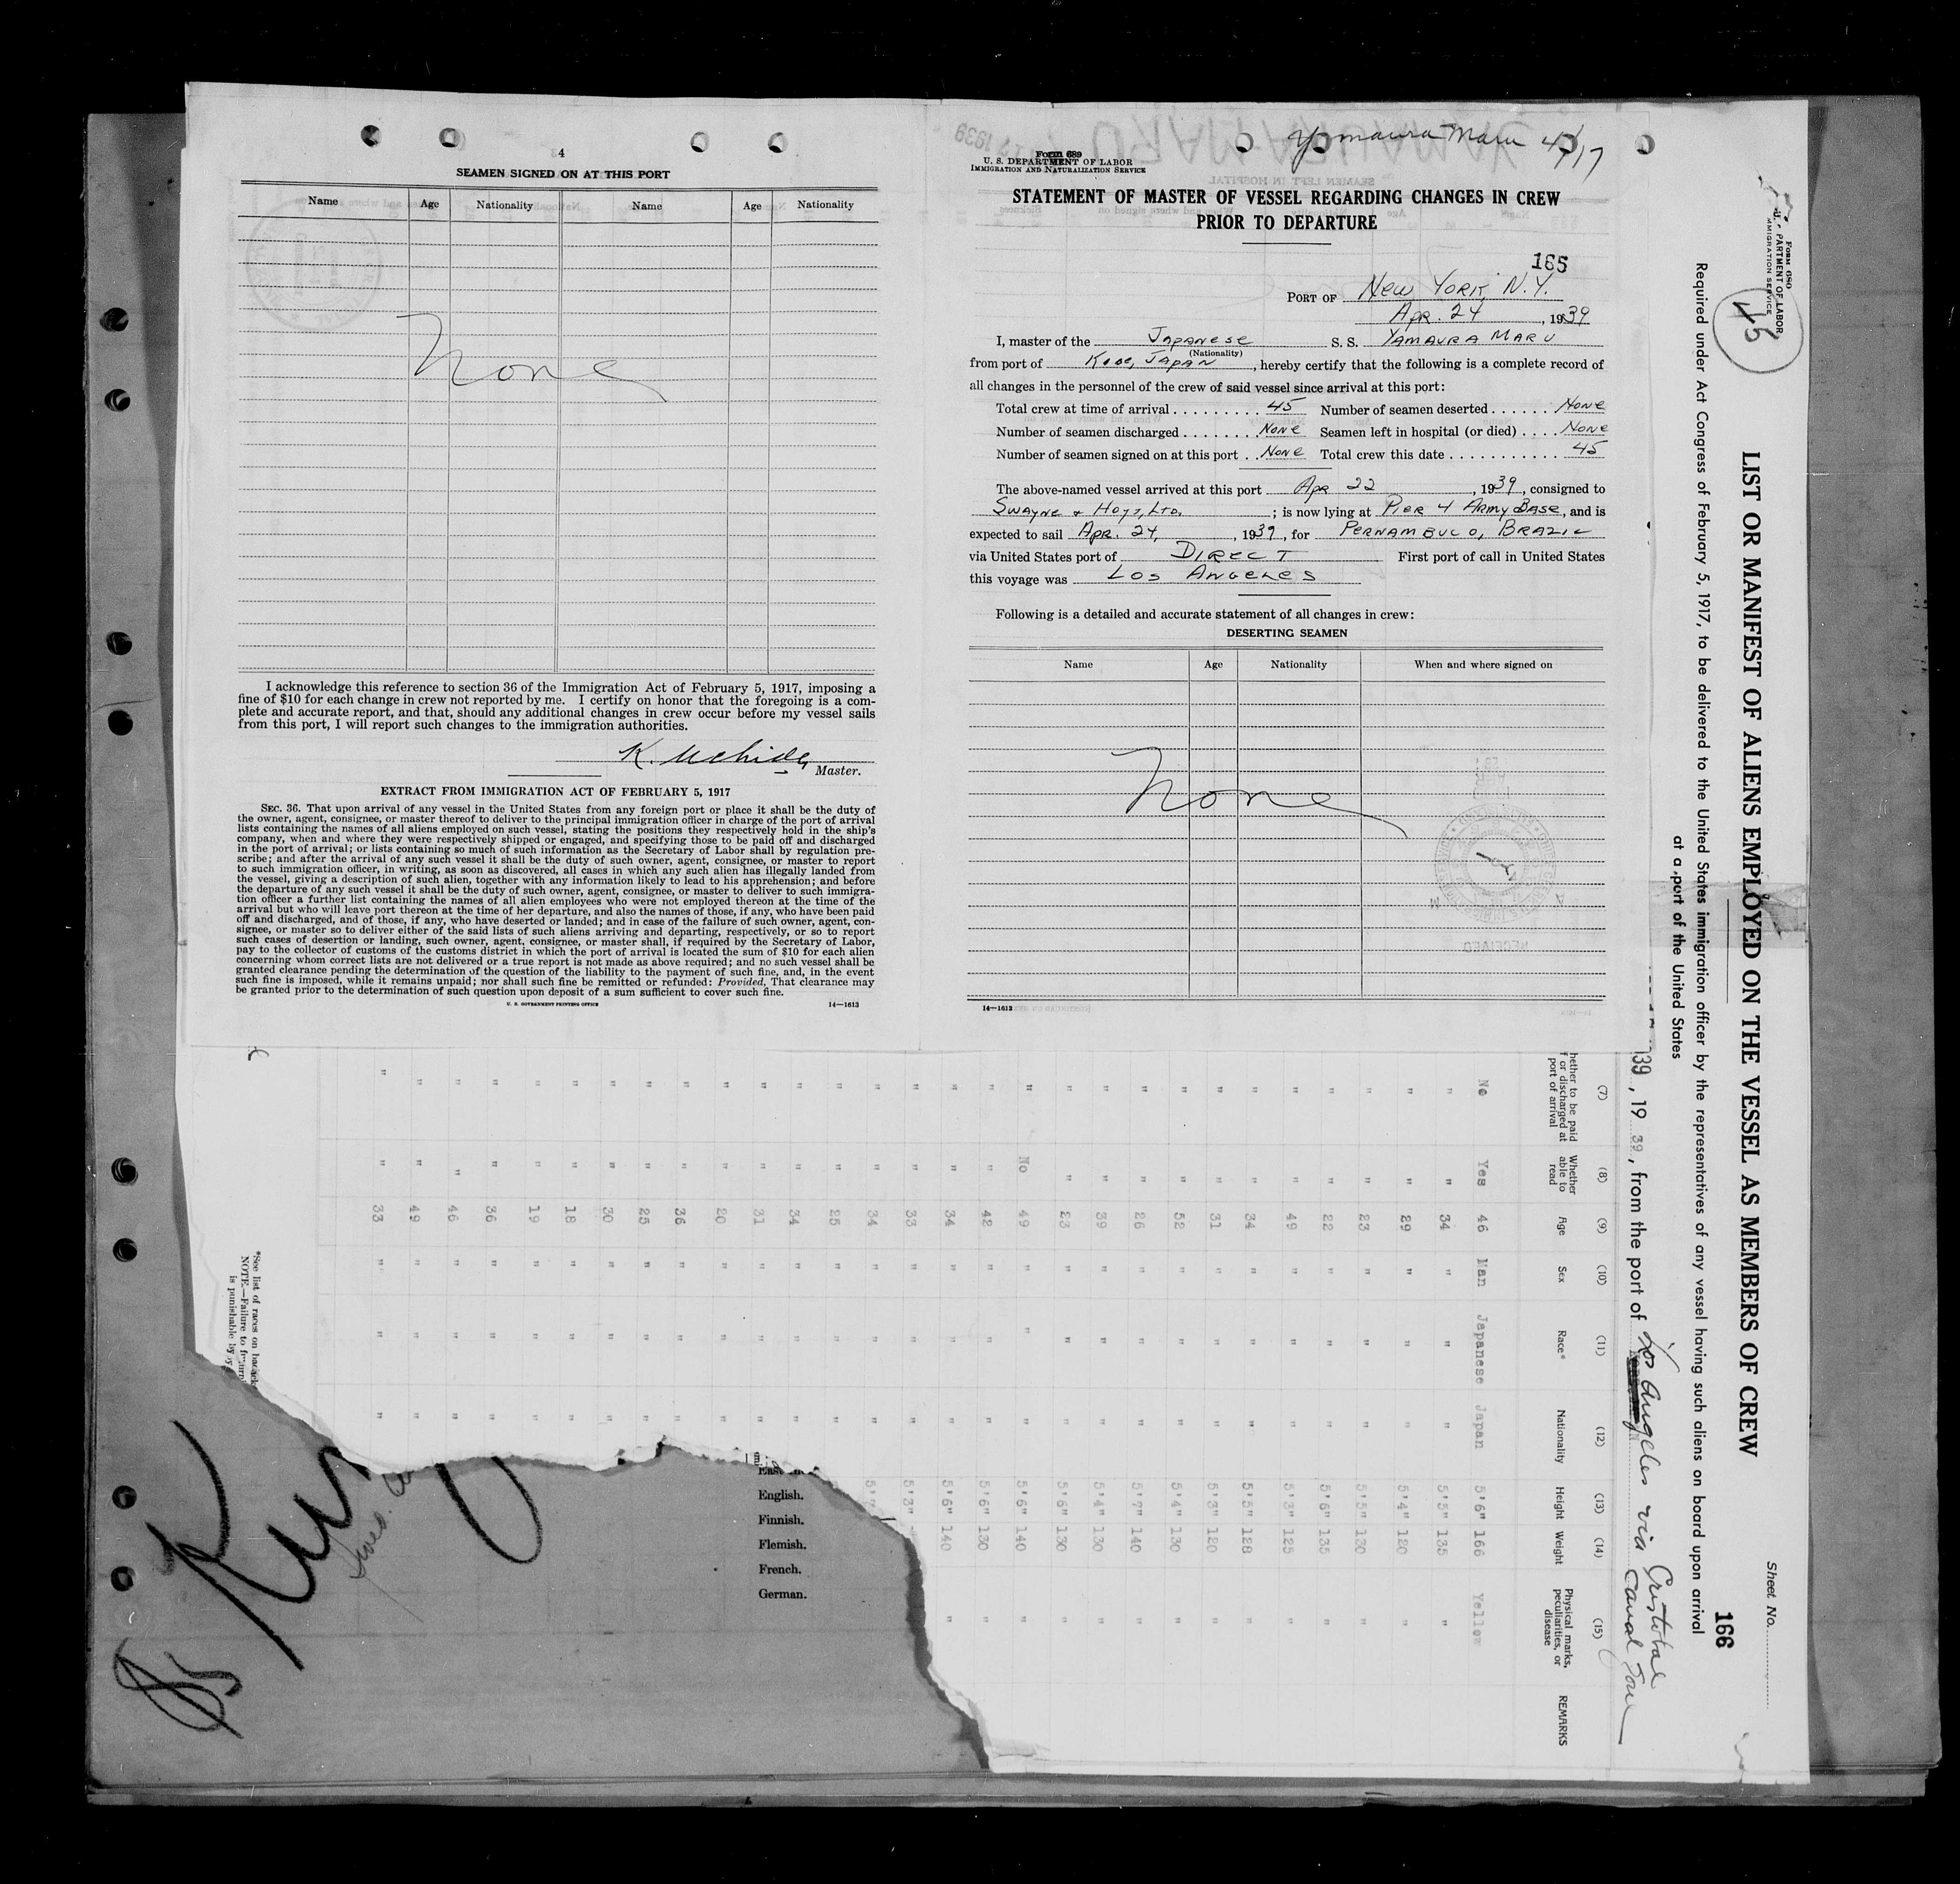 4
SEAMEN SIGNED ON AT THIS PORT
Name Age Nationality Name Age Nationality
None
I acknowledge this reference to section 36 of the Immigration Act of February 5, 1917, imposing a
fine of $10 for each change in crew not reported by me. I certify on honor that the foregoing is a com-
plete and accurate report, and that, should any additional changes in crew occur before my vessel sails
from this port, I will report such changes to the immigration authorities.
K. Uchida
Master.
EXTRACT FROM IMMIGRATION ACT OF FEBRUARY 5, 1917
SEC. 36. That upon arrival of any vessel in the United States from any foreign port or place it shall be the duty of
the owner, agent, consignee, or master thereof to deliver to the principal immigration officer in charge of the port of arrival
lists containing the names of all aliens employed on such vessel, stating the positions they respectively hold in the ship's
company, when and where they were respectively shipped or engaged, and specifying those to be paid off and discharged
in the port of arrival; or lists containing so much of such information as the Secretary of Labor shall by regulation pre-
scribe; and after the arrival of any such vessel it shall be the duty of such owner, agent, consignee, or master to report
to such immigration officer, in writing, as soon as discovered, all cases in which any such alien has illegally landed from
the vessel, giving a description of such alien, together with any information likely to lead to his apprehension; and before
the departure of any such vessel it shall be the duty of such owner, agent, consignee, or master to deliver to such immigra-
tion officer a further list containing the names of all alien employees who were not employed thereon at the time of the
arrival but who will leave port thereon at the time of her departure, and also the names of those, if any, who have been paid
off and discharged, and of those, if any, who have deserted or landed; and in case of the failure of such owner, agent, con-
signee, or master so to deliver either of the said lists of such aliens arriving and departing, respectively, or so to report
such cases of desertion or landing, such owner, agent, consignee, or master shall, if required by the Secretary of Labor,
pay to the collector of customs of the customs district in which the port of arrival is located the sum of $10 for each alien
concerning whom correct lists are not delivered or a true report is not made as above required; and no such vessel shall be
granted clearance pending the determination of the question of the liability to the payment of such fine, and, in the event
such fine is imposed, while it remains unpaid; nor shall such fine be remitted or refunded: Provided, That clearance may
be granted prior to the determination of such question upon deposit of a sum sufficient to cover such fine.
U. S. GOVERNMENT PRINTING OFFICE 14—1613
Yamaura Maru 4/17
Form 689
U. S. DEPARTMENT OF LABOR
IMMIGRATION AND NATURALIZATION SERVICE
STATEMENT OF MASTER OF VESSEL REGARDING CHANGES IN CREW
PRIOR TO DEPARTURE
165
PORT OF New York, N.Y.
Apr. 24, 1939
I, master of the Japanese S. S. YAMAURA MARU
(Nationality)
from port of Kobe, Japan, hereby certify that the following is a complete record of
all changes in the personnel of the crew of said vessel since arrival at this port:
Total crew at time of arrival 45 Number of seamen deserted None
Number of seamen discharged None Seamen left in hospital (or died) None
Number of seamen signed on at this port None Total crew this date 45
The above-named vessel arrived at this port Apr 22, 1939, consigned to
Swayne & Hoyt, Ltd. ; is now lying at Pier 4 Army Base, and is
expected to sail Apr. 24, 1939, for PERNAMBUCO, BRAZIL
via United States port of DIRECT First port of call in United States
this voyage was Los Angeles
Following is a detailed and accurate statement of all changes in crew:
DESERTING SEAMEN
Name Age Nationality When and where signed on
None
14—1613
Form 680
U. S. DEPARTMENT OF LABOR
IMMIGRATION SERVICE
45
Sheet No.
166
LIST OR MANIFEST OF ALIENS EMPLOYED ON THE VESSEL AS MEMBERS OF CREW
Required under Act Congress of February 5, 1917, to be delivered to the United States immigration officer by the representatives of any vessel having such aliens on board upon arrival
at a port of the United States
39, 1939, from the port of Los Angeles via Cristobal
Canal Zone
(7) (8) (9) (10) (11) (12) (13) (14) (15)
hether to be paid Whether Age Sex Race* Nationality Height Weight Physical marks, REMARKS
f or discharged at able to peculiarities, or
port of arrival read disease
No Yes 46 Man Japanese Japan 5'6" 166 Yellow
" " 34 " " " 5'5" 135 "
" " 29 " " " 5'4" 120 "
" " 23 " " " 5'5" 130 "
" " 22 " " " 5'6" 135 "
" " 49 " " " 5'3" 125 "
" " 34 " " " 5'5" 128 "
" " 31 " " " 5'3" 120 "
" " 52 " " " 5'4" 130 "
" " 26 " " " 5'7" 140 "
" " 39 " " " 5'4" 130 "
" " 23 " " " 5'6" 130 "
" No 49 " " " 5'6" 140 "
" " 42 " " " 5'6" 130 "
" " 34 " " " 5'6" 140 "
" " 33 " " " 5'3"
" " 34 " " "
" " 25 " " "
" " 34 " " "
" " 31 " " "
" " 20 " " "
" " 36 " " "
" " 25 " " "
" " 30 " " "
" " 18 " " "
" " 19 " " "
" " 36 " " "
" " 46 " " "
" " 49 " " "
" " 33 " " "
*See list of races on back
NOTE.—Failure to
is punishable by
English.
Finnish.
Flemish.
French.
German.
85